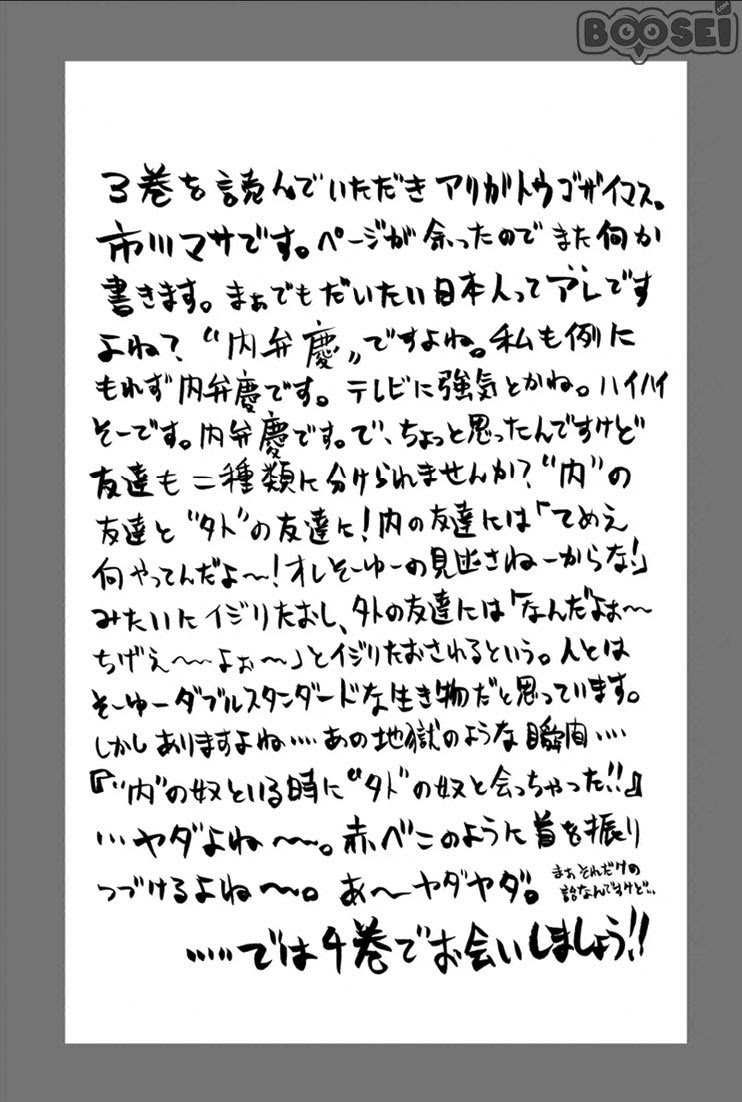 BOOSEI
.COM
3巻を読んでいただきアリガトウゴザイマス。
市川マサです。ページが余ったのでまた何か
書きます。まぁでもだいたい日本人ってアレです
よね?“内弁慶”ですよね。私も例に
もれず内弁慶です。テレビに強気とかね。ハイハイ
そーです。内弁慶です。で、ちょっと思ったんですけど
友達も二種類に分けられませんか?“内”の
友達と“外”の友達に!内の友達には「てめえ
何やってんだよ〜!オレそーゆーの見逃さねーからな!」
みたいにイジリたおし、外の友達には「なんだよぉ〜
ちげぇ〜〜よぉ〜」とイジリたおされるという。人とは
そーゆーダブルスタンダードな生き物だと思っています。
しかしありますよね‥‥あの地獄のような瞬間‥‥
『“内”の奴といる時に“外”の奴と会っちゃった!!』
…ヤダよね〜〜。赤べこのように首を振り
つづけるよね〜〜。あ〜ヤダヤダ。
まぁそれだけの
話なんですけど…
……では4巻でお会いしましょう!!